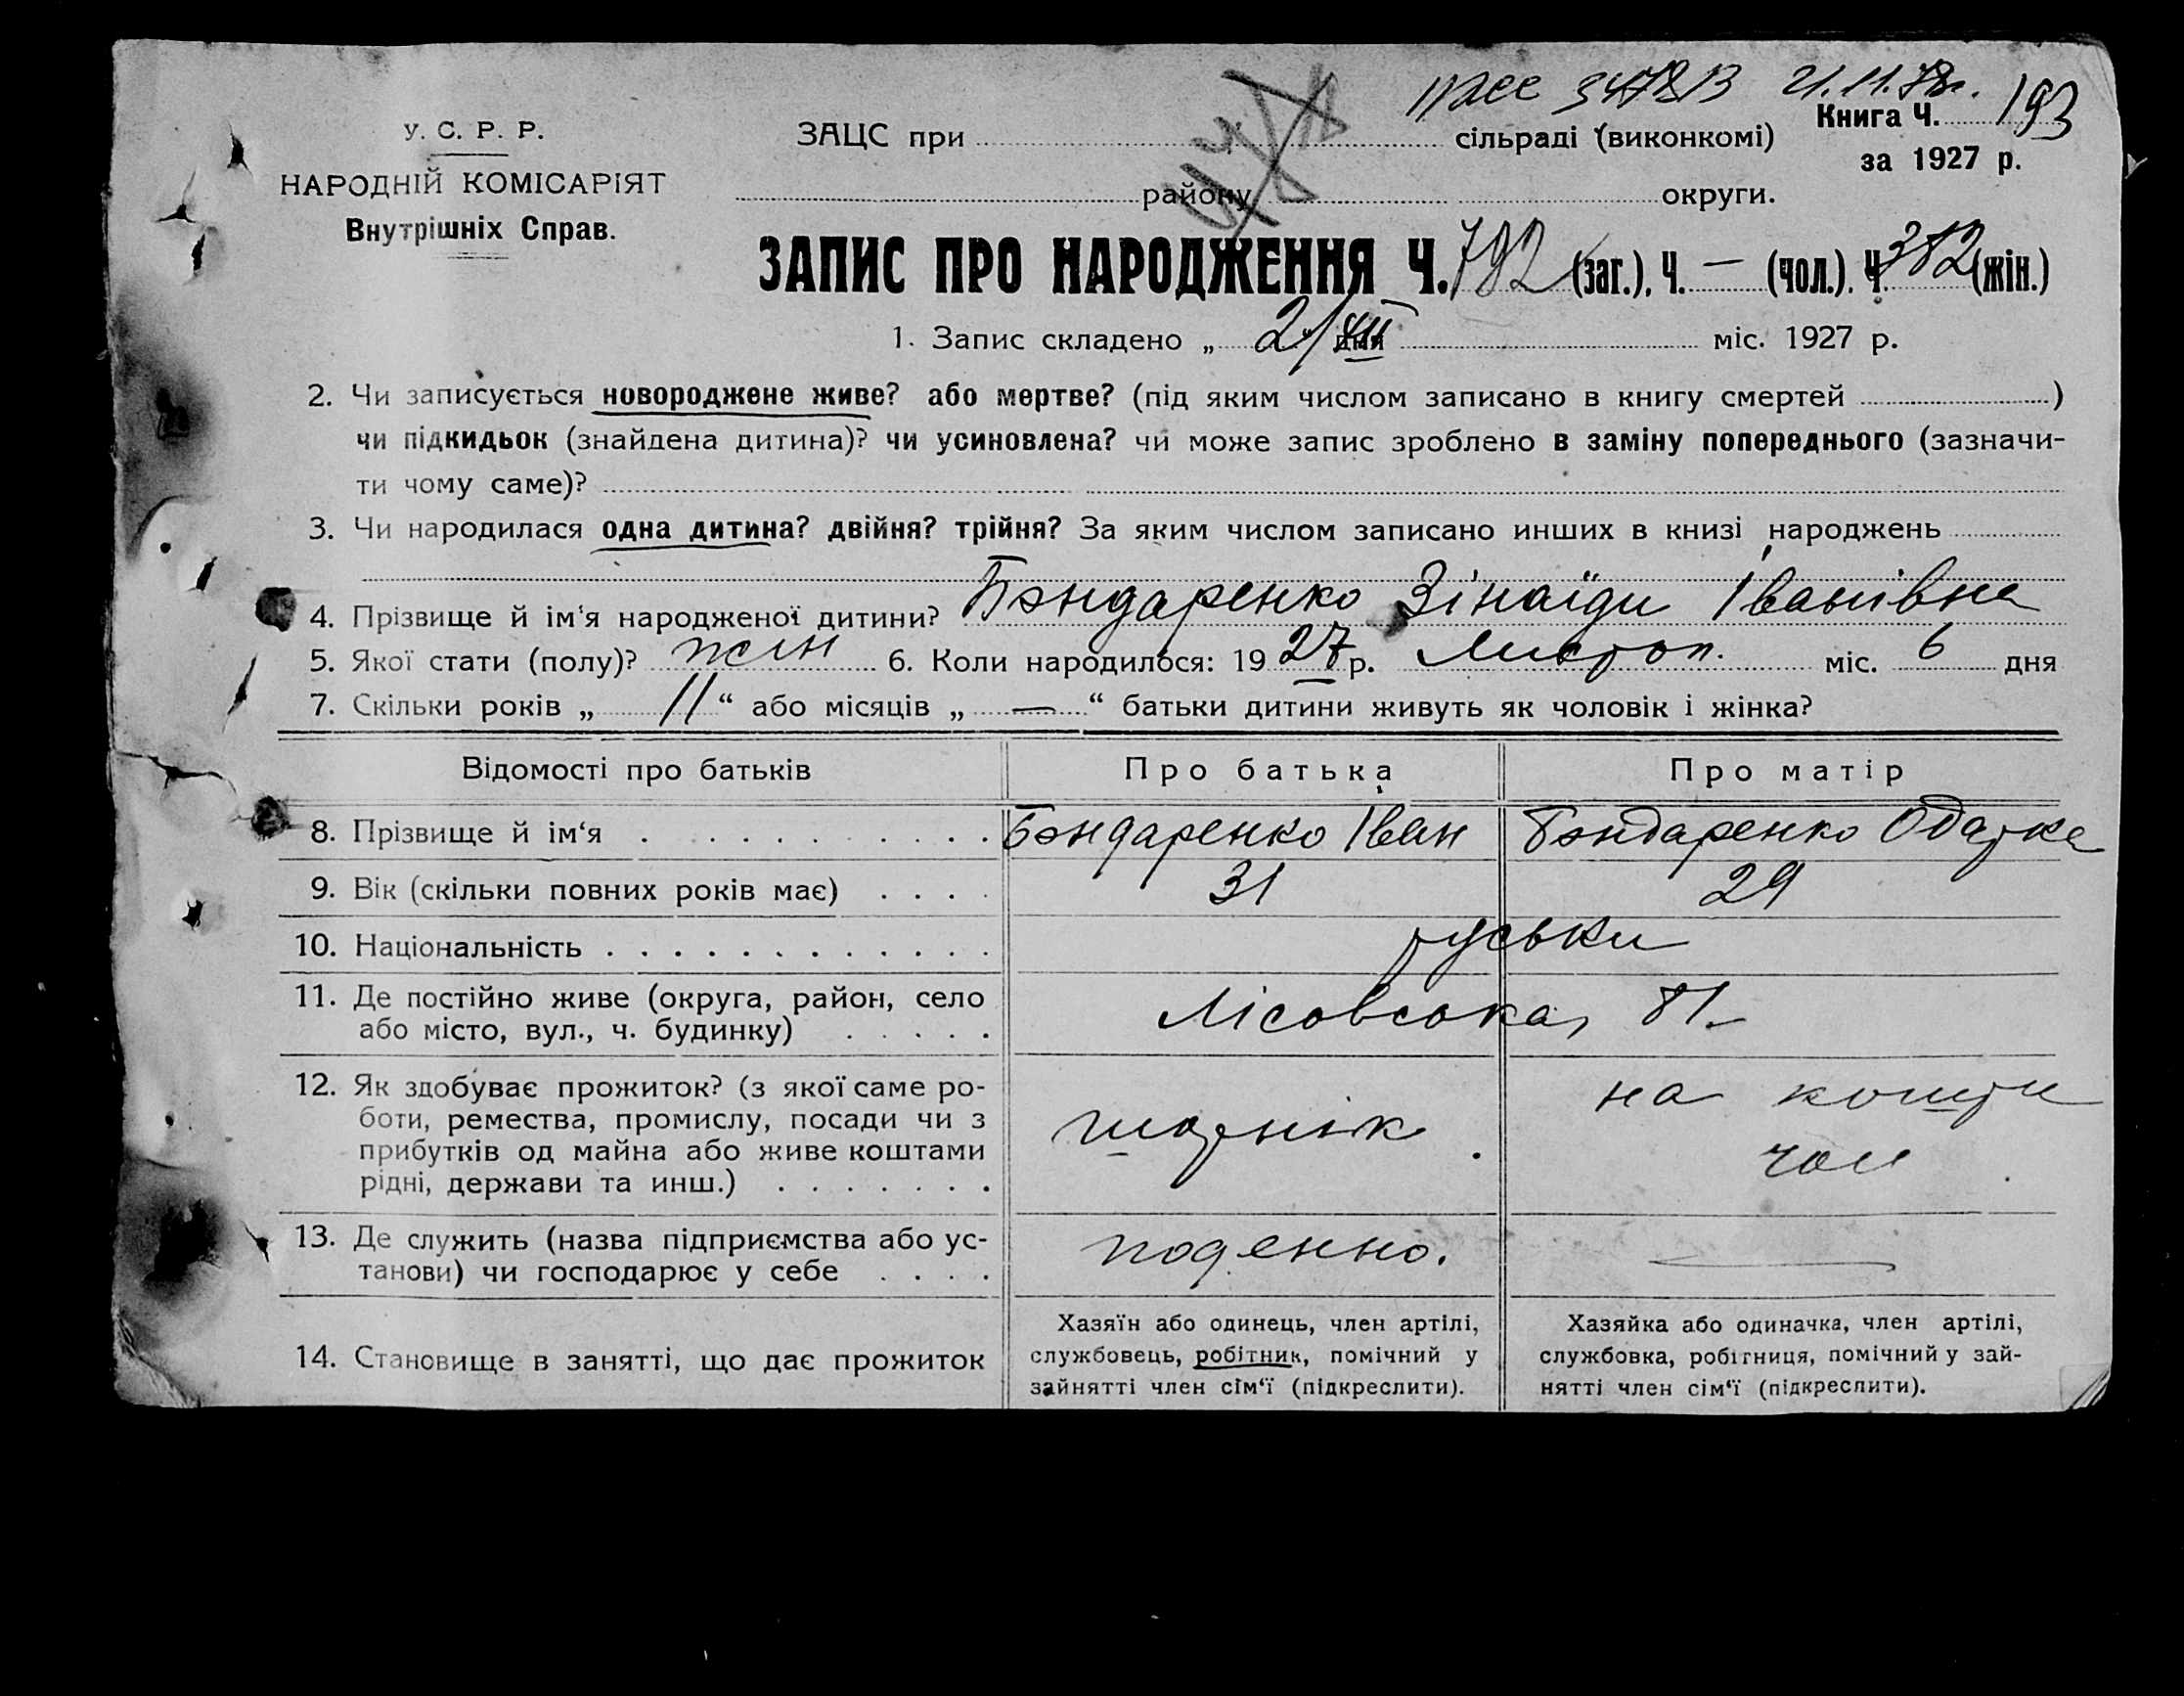 У. С. Р. Р.
НАРОДНІЙ КОМІСАРІЯТ
Внутрішніх Справ.
21.11.78г.
ЗАЦС при сільраді (виконкомі)
Книга Ч. 193
за 1927 р.
району округи.
ЗАПИС ПРО НАРОДЖЕННЯ Ч. 792 (заг.), Ч. — (чол.). Ч. 382 (жін.)
1. Запис складено „ 21/XII дня міс. 1927 р.
2. Чи записується новороджене живе? або мертве? (під яким числом записано в книгу смертей )
чи підкидьок (знайдена дитина)? чи усиновлена? чи може запис зроблено в заміну попереднього (зазначи-
ти чому саме)?
3. Чи народилася одна дитина? двійня? трійня? За яким числом записано инших в книзі народжень
4. Прізвище й ім‘я народженої дитини? Бондаренко Зінаїди Іванівна
5. Якої стати (полу)? жін 6. Коли народилося: 1927 р. Листоп. міс. 6 дня
7. Скільки років „ 11 “ або місяців „ — “ батьки дитини живуть як чоловік і жінка?
Відомості про батьків Про батька Про матір
8. Прізвище й ім‘я . . . . . . . . . . Бондаренко Іван Бондаренко Одарка
9. Вік (скільки повних років має) . . . . 31 29
10. Національність . . . . . . . . . . . . руськи
11. Де постійно живе (округа, район, село
або місто, вул., ч. будинку) . . . . . Лісовська, 81
12. Як здобуває прожиток? (з якої саме ро-
боти, ремества, промислу, посади чи з
прибутків од майна або живе коштами
рідні, держави та инш.) . . . . . . .
на кошти
чол
13. Де служить (назва підприємства або ус-
танови) чи господарює у себе . . . . поденно.
14. Становище в занятті, що дає прожиток
Хазяїн або одинець, член артілі,
службовець, робітник, помічний у
зайнятті член сім‘ї (підкреслити).
Хазяйка або одиначка, член артілі,
службовка, робітниця, помічний у зай-
нятті член сім‘ї (підкреслити).